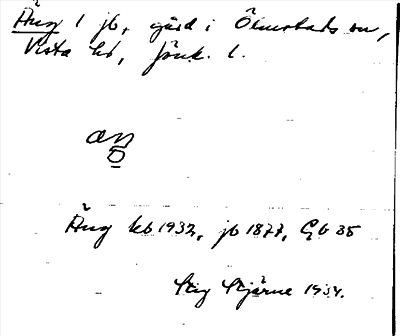 Äng 1 jb, gård i Ölmstads sn,
Vista hd, Jönk. l.
äŋ
Äng kb 1932, jb 1877, GEb 35
Stig Stjärne 1934.